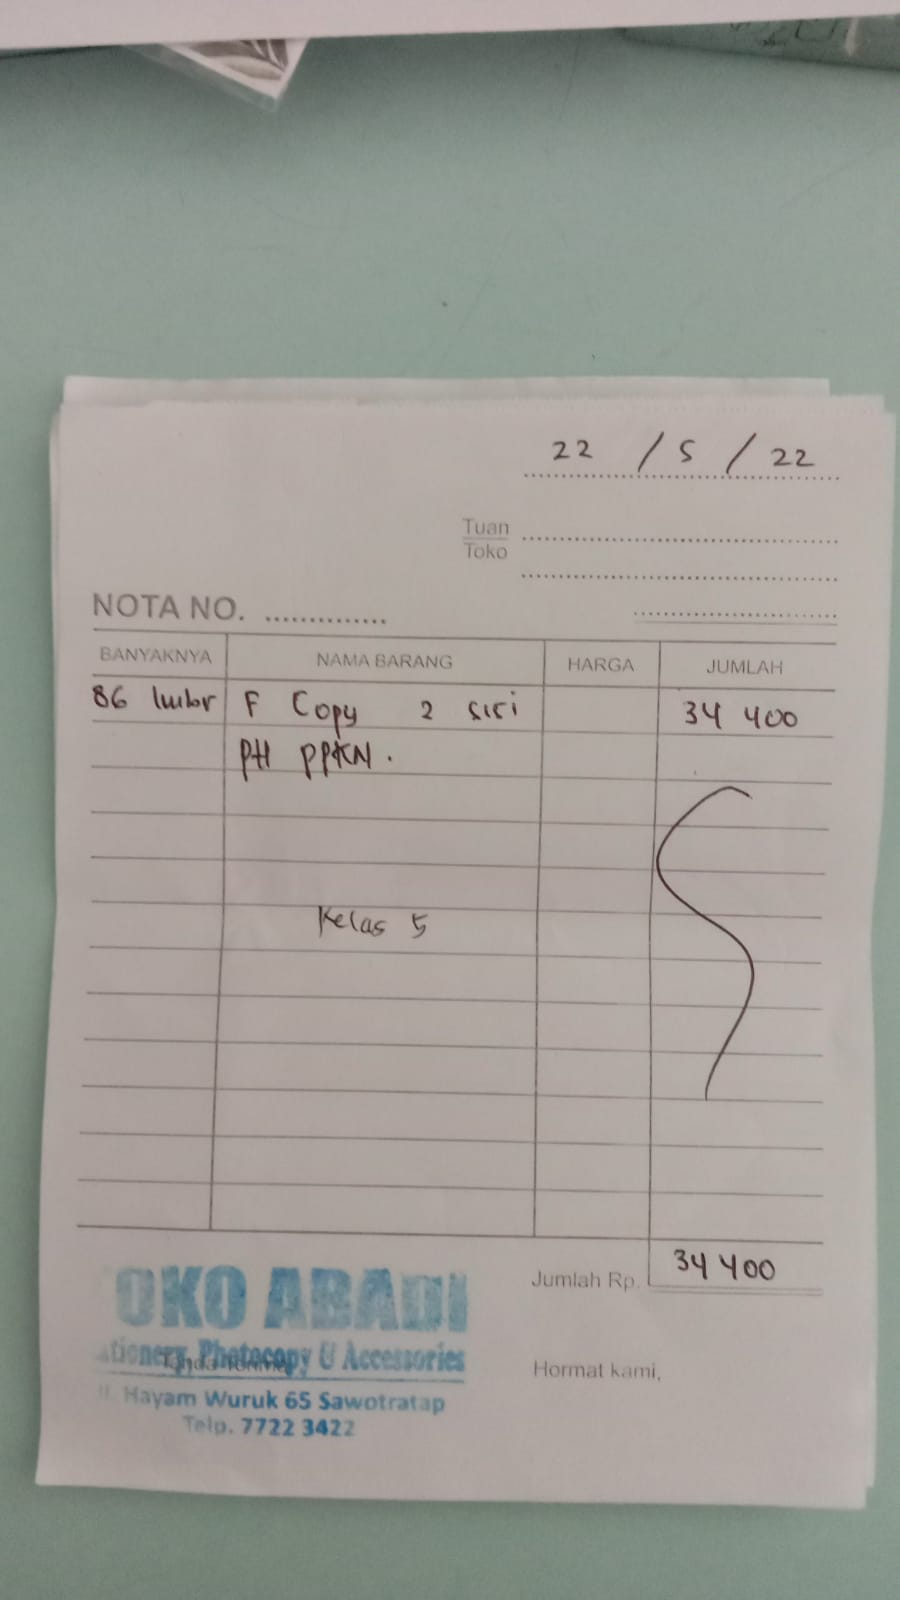 22 / 5 / 22
Tuan
Toko
NOTA NO. ..............
BANYAKNYA NAMA BARANG HARGA JUMLAH
86 lmbr F Copy 2 sisi 34 400
PH PPKN.
Kelas 5
Jumlah Rp. 34 400
OKO ABADI
ationery, Photocopy & Accessories
Tanda Terima
Jl. Hayam Wuruk 65 Sawotratap
Telp. 7722 3422
Hormat kami,